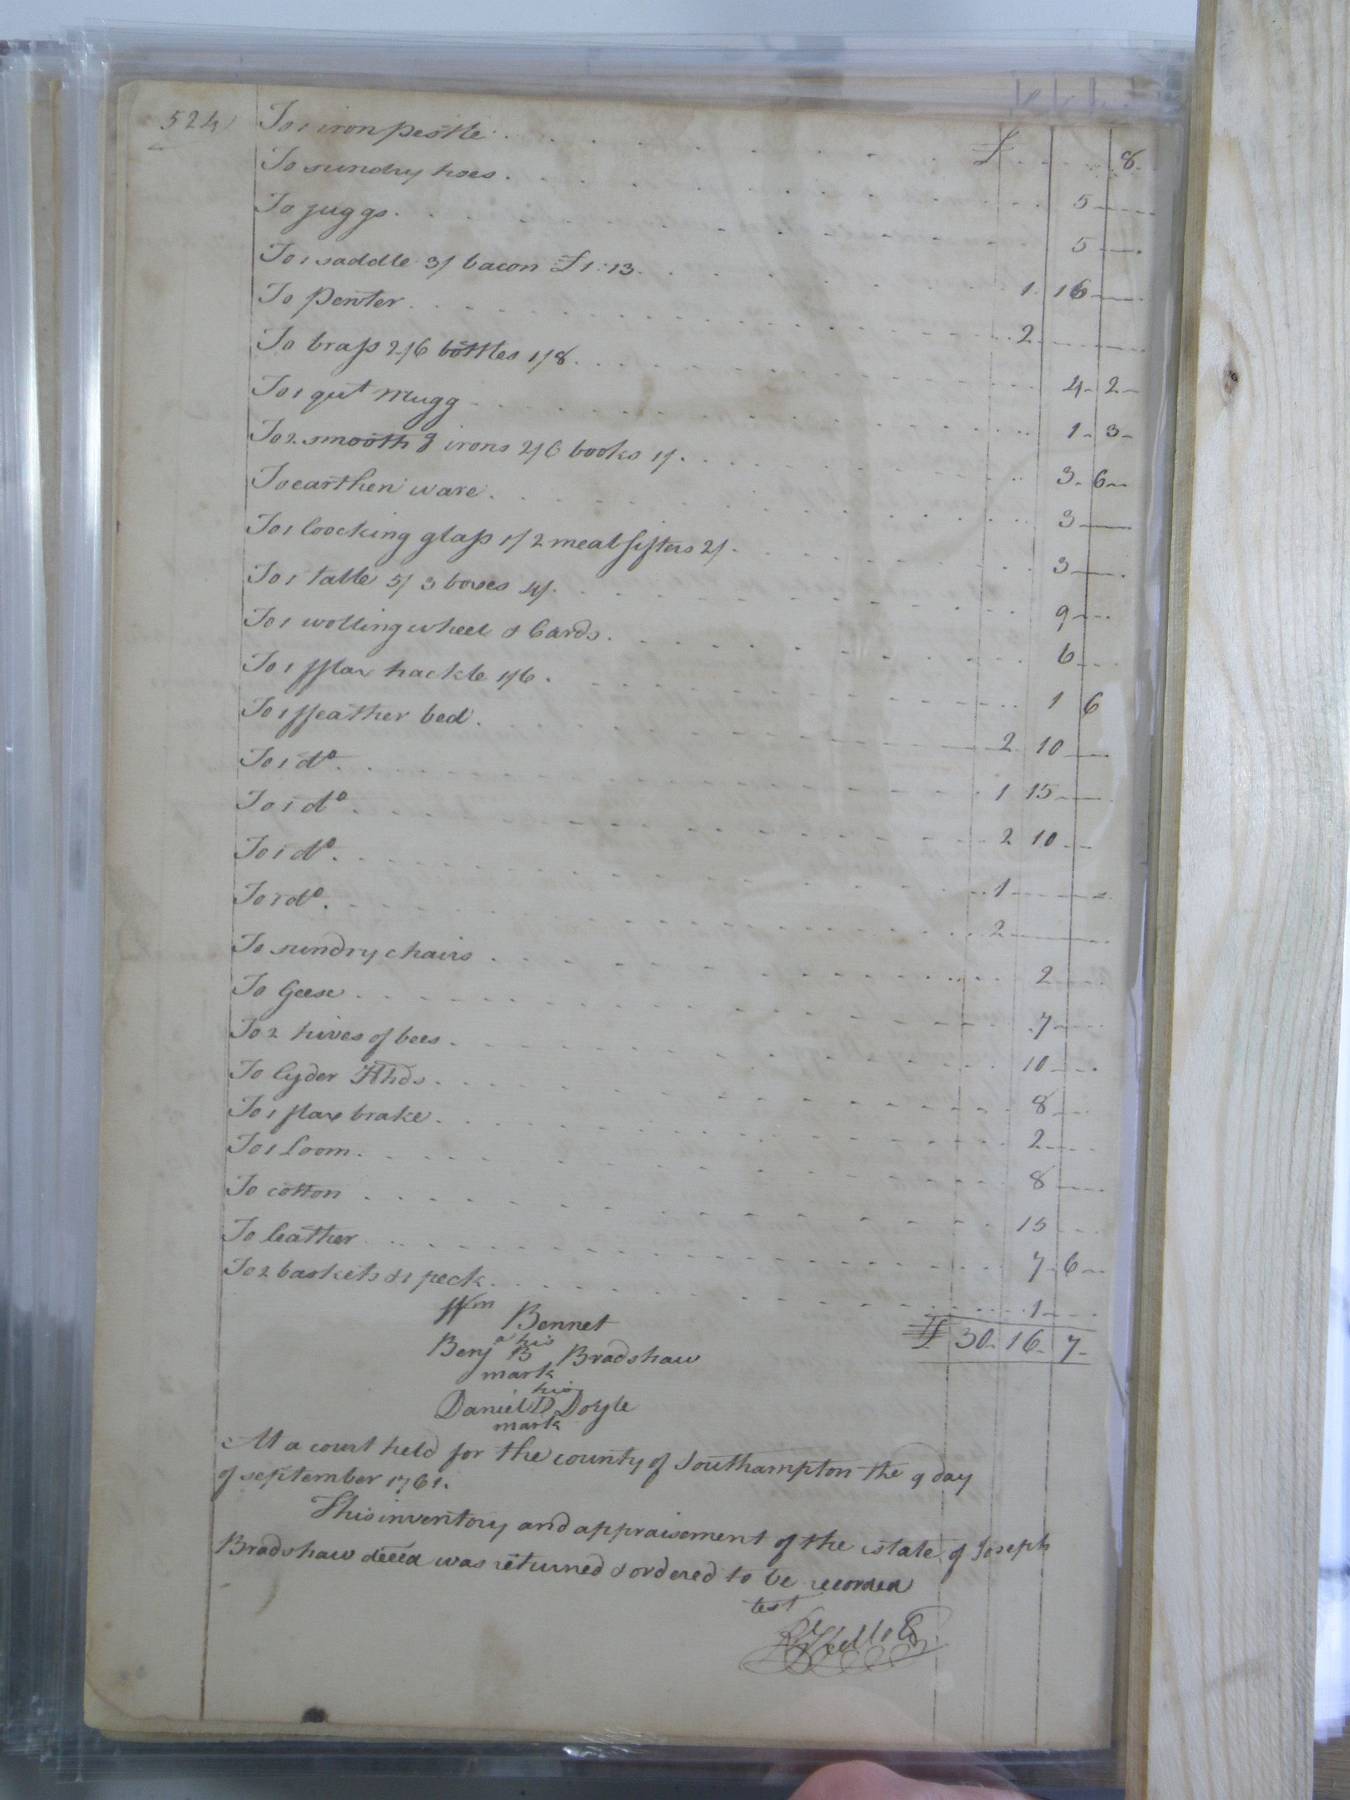 524
To 1 iron pestle £ 8
To sundry hoes 5
To juggs 5
To 1 saddle 3/ bacon £1:13 1 16
To Pewter 2
To brass 2/6 bottles 1/8 4 2
To 1 qut mugg 1 3
To 2 smooth g irons 2/6 books 1/ 3 6
To earthen ware 3
To 1 loocking glass 1/ 2 meal sifters 2/ 3
To 1 table 5/ 3 boxes 4/ 9
To 1 wolling wheel & Cards 6
To 1 fflax hackle 1/6 1 6
To 1 ffeather bed 2 10
To 1 do 1 15
To 1 do 2 10
To 1 do 1
To 1 do 2
To sundry chairs 2
To Geese 7
To 2 hives of bees 10
To Cyder Hhds 8
To 1 flax brake 2
To 1 Loom 8
To cotton 15
To leather 7 6
To 2 baskets & 1 peck 1
Wm Bennet £ 30 16 7
his
Benja B Bradshaw
mark
his
Daniel D Doyle
mark
At a court held for the county of Southampton the 9 day
of september 1761.
This inventory and appraisement of the estate of Joseph
Bradshaw deced was returned & ordered to be recorded
test